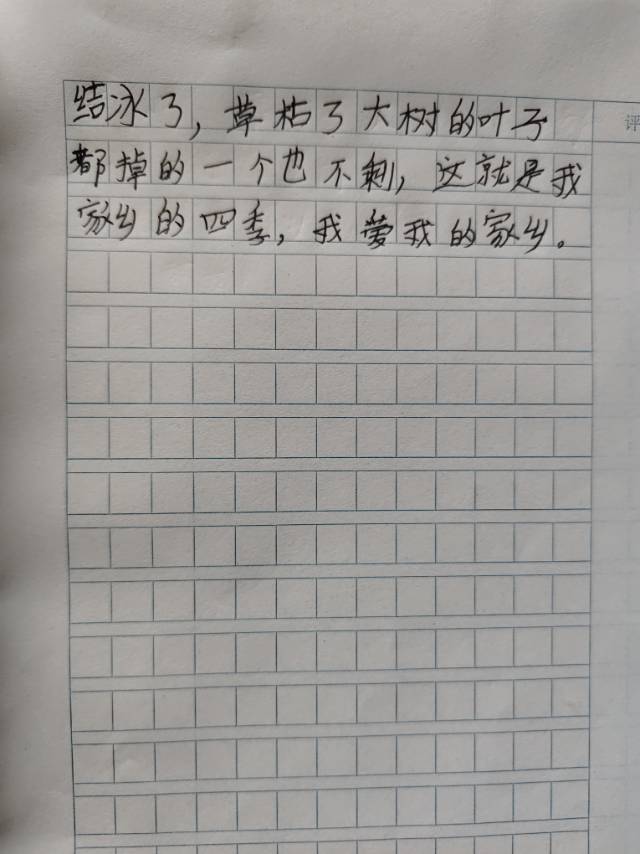 结泳了,草枯了大树的叶子
都掉的一个也不剩,这就是我
家乡的四季,我爱我的家乡。
评